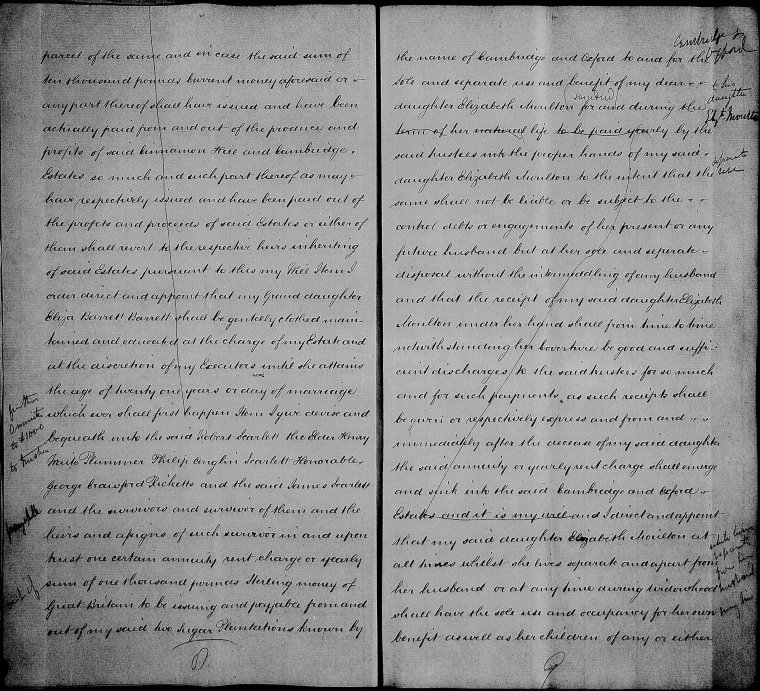 parcel of the same and in case the said sum of
ten thousand pounds current money aforesaid or
any part thereof shall have issued and have been
actually paid from and out of the produce and
profits of said Cinnamon Hill and Cambridge
Estates so much and such part thereof as may
have respectively issued and have been paid out of
the profits and proceeds of said Estates or either of
them shall revert to the respective heirs inheriting
of said Estates pursuant to this my Will Item I
order direct and appoint that my Grand daughter
Eliza Barrett Barrett shall be genteelly clothed main
tained and educated at the charge of my Estate and
at the discretion of my Executors until she attains
the age of twenty one years or day of marriage
which ever shall first happen Item I give devise and
bequeath unto the said Robert Scarlett the Elder Henry
Waite Plummer Philip Anglin Scarlett Honorable
George Crawford Ricketts and the said James Scarlett
and the survivors and survivor of them and the
heirs and assigns of such survivor in and upon
trust one certain annuity rent charge or yearly
sum of one thousand pounds Sterling money of
Great Britain to be issuing and payable from and
out of my said two Sugar Plantations known by
further
Annuity
to £1000
to trustees
payable
out of
Cambridge &
Oxford
the name of Cambridge and Oxford to and for the
sole and separate use and benefit of my dear
daughter Elizabeth Moulton for and during the
term of her natural life to be paid yearly by the
said trustees into the proper hands of my said
daughter Elizabeth Moulton to the intent that the
same shall not be liable or be subject to the
control debts or engagements of her present or any
future husband but at her sole and seperate
disposal without the intermeddling of any husband
and that the receipt of my said daughter Elizabeth
Moulton under her hand shall from time to time
notwithstanding her coverture be good and suffi-
cient discharges to the said trustees for so much
and for such payments as such receipts shall
be given or respectively express and from and
immediately after the decease of my said daughter
the said annuity or yearly rent charge shall emerge
and sink into the said Cambridge and Oxford
Estates and it is my will and I direct and appoint
that my said daughter Elizabeth Moulton at
all times whilst she lives separate and apart from
her husband or at any time during widowhood
shall have the sole use and occupancy for her own
benefit as well as her children of any or either
to his
daughter
Elizth Moulton
separate
use
while living
separate
from
husband